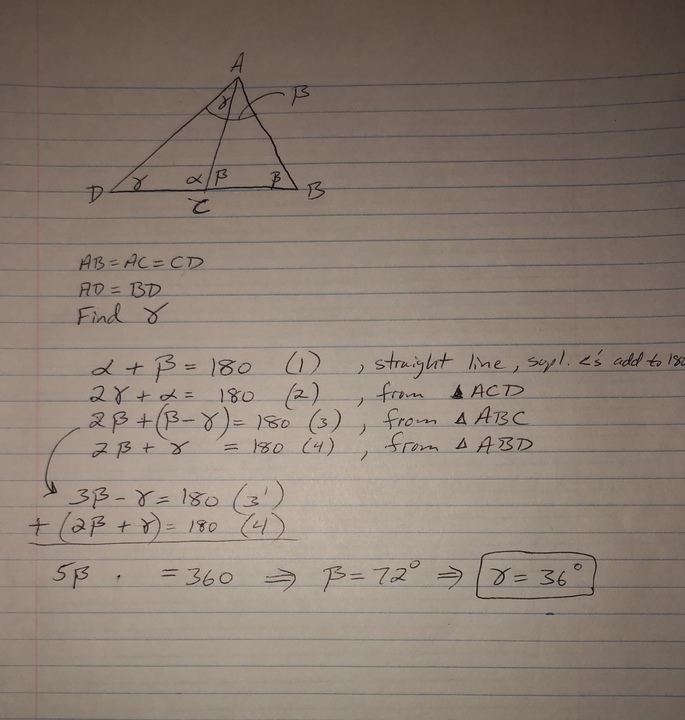 A
γ β
D γ α β β B
C
AB = AC = CD
AD = BD
Find γ
α + β = 180 (1) , straight line, supl. <s' add to 180
2γ + α = 180 (2) , from ▲ ACD
2β + (β - γ) = 180 (3) , from △ ABC
2β + γ = 180 (4) , from △ ABD
3β - γ = 180 (3')
+ (2β + γ) = 180 (4)
5β . = 360 ⇒ β = 72° ⇒ γ = 36°